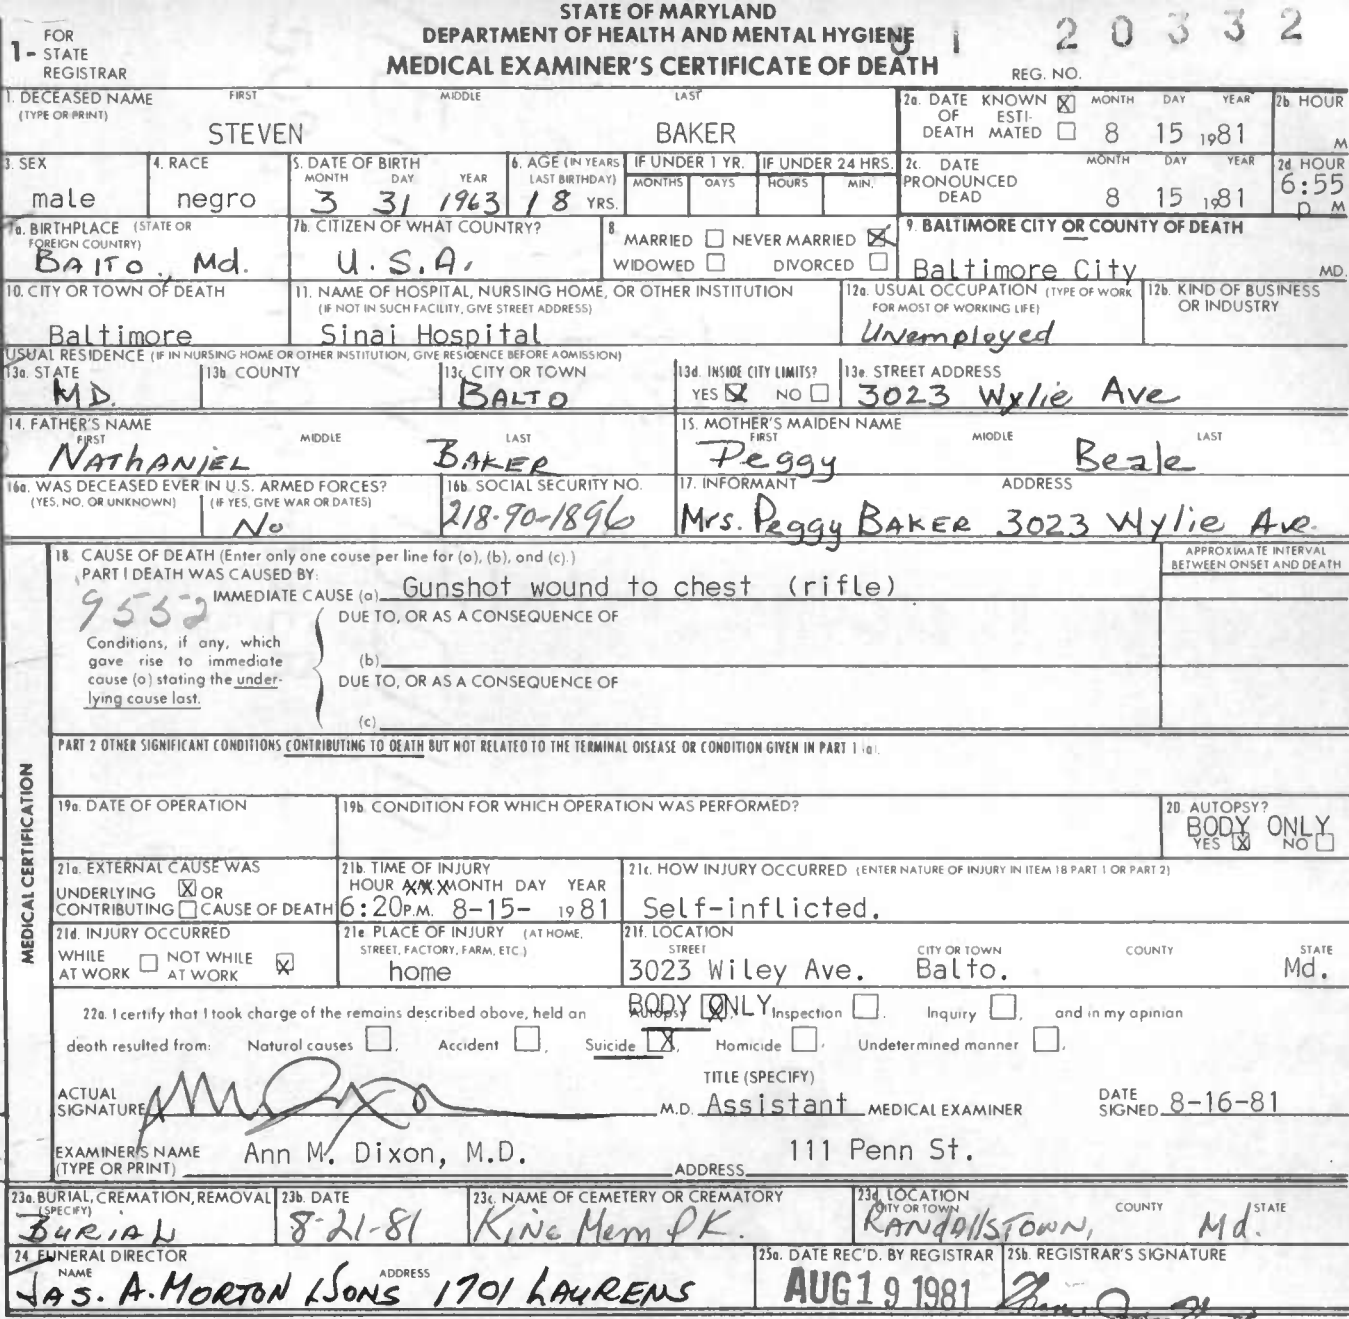 STATE OF MARYLAND
DEPARTMENT OF HEALTH AND MENTAL HYGIENE
MEDICAL EXAMINER'S CERTIFICATE OF DEATH
1- FOR STATE REGISTRAR
REG. NO. 81 20332
1. DECEASED NAME (TYPE OR PRINT) FIRST MIDDLE LAST
STEVEN BAKER
2a. DATE OF DEATH KNOWN X ESTIMATED MONTH DAY YEAR
8 15 1981
2b. HOUR M
3. SEX
male
4. RACE
negro
5. DATE OF BIRTH MONTH DAY YEAR
3 31 1963
6. AGE (IN YEARS LAST BIRTHDAY)
18 YRS.
IF UNDER 1 YR. MONTHS DAYS
IF UNDER 24 HRS. HOURS MIN.
2c. DATE PRONOUNCED DEAD MONTH DAY YEAR
8 15 1981
2d. HOUR
6:55 p M
7a. BIRTHPLACE (STATE OR FOREIGN COUNTRY)
BAlTO., Md.
7b. CITIZEN OF WHAT COUNTRY?
U.S.A.
8. MARRIED NEVER MARRIED X
WIDOWED DIVORCED
9. BALTIMORE CITY OR COUNTY OF DEATH
Baltimore City MD.
10. CITY OR TOWN OF DEATH
Baltimore
11. NAME OF HOSPITAL, NURSING HOME, OR OTHER INSTITUTION
(IF NOT IN SUCH FACILITY, GIVE STREET ADDRESS)
Sinai Hospital
12a. USUAL OCCUPATION (TYPE OF WORK FOR MOST OF WORKING LIFE)
Unemployed
12b. KIND OF BUSINESS OR INDUSTRY
USUAL RESIDENCE (IF IN NURSING HOME OR OTHER INSTITUTION, GIVE RESIDENCE BEFORE ADMISSION)
13a. STATE
MD.
13b. COUNTY
13c. CITY OR TOWN
BALTO
13d. INSIDE CITY LIMITS?
YES X NO
13e. STREET ADDRESS
3023 Wylie Ave
14. FATHER'S NAME FIRST MIDDLE LAST
NATHANiEL BAKER
15. MOTHER'S MAIDEN NAME FIRST MIDDLE LAST
Peggy Beale
16a. WAS DECEASED EVER IN U.S. ARMED FORCES?
(YES, NO, OR UNKNOWN) (IF YES, GIVE WAR OR DATES)
No
16b. SOCIAL SECURITY NO.
218-90-1896
17. INFORMANT ADDRESS
Mrs. Peggy BAKER 3023 Wylie Ave.
MEDICAL CERTIFICATION
18. CAUSE OF DEATH (Enter only one cause per line for (a), (b), and (c).)
APPROXIMATE INTERVAL BETWEEN ONSET AND DEATH
PART I DEATH WAS CAUSED BY:
IMMEDIATE CAUSE (a) Gunshot wound to chest (rifle)
9552
DUE TO, OR AS A CONSEQUENCE OF
Conditions, if any, which gave rise to immediate cause (a) stating the underlying cause last.
(b)
DUE TO, OR AS A CONSEQUENCE OF
(c)
PART 2 OTHER SIGNIFICANT CONDITIONS CONTRIBUTING TO DEATH BUT NOT RELATED TO THE TERMINAL DISEASE OR CONDITION GIVEN IN PART 1 (a).
19a. DATE OF OPERATION
19b. CONDITION FOR WHICH OPERATION WAS PERFORMED?
20. AUTOPSY?
BODY ONLY
YES X NO
21a. EXTERNAL CAUSE WAS
UNDERLYING X OR
CONTRIBUTING CAUSE OF DEATH
21b. TIME OF INJURY
HOUR MONTH DAY YEAR
6:20 P.M. 8-15- 1981
21c. HOW INJURY OCCURRED (ENTER NATURE OF INJURY IN ITEM 18 PART 1 OR PART 2)
Self-inflicted.
21d. INJURY OCCURRED
WHILE AT WORK NOT WHILE AT WORK X
21e. PLACE OF INJURY (AT HOME, STREET, FACTORY, FARM, ETC.)
home
21f. LOCATION
STREET CITY OR TOWN COUNTY STATE
3023 Wiley Ave. Balto. Md.
22a. I certify that I took charge of the remains described above, held an Autopsy X BODY ONLY, Inspection, Inquiry, and in my opinion
death resulted from: Natural causes, Accident, Suicide X, Homicide, Undetermined manner.
ACTUAL SIGNATURE
M.D.
TITLE (SPECIFY)
Assistant MEDICAL EXAMINER
DATE SIGNED 8-16-81
EXAMINER'S NAME (TYPE OR PRINT) Ann M. Dixon, M.D.
ADDRESS 111 Penn St.
23a. BURIAL, CREMATION, REMOVAL (SPECIFY)
BURIAL
23b. DATE
8-21-81
23c. NAME OF CEMETERY OR CREMATORY
King Mem PK.
23d. LOCATION CITY OR TOWN COUNTY STATE
RANdAllsTOWN, Md.
24. FUNERAL DIRECTOR NAME ADDRESS
JAS. A. MORTON & SONS 1701 LAURENS
25a. DATE REC'D. BY REGISTRAR
AUG 19 1981
25b. REGISTRAR'S SIGNATURE